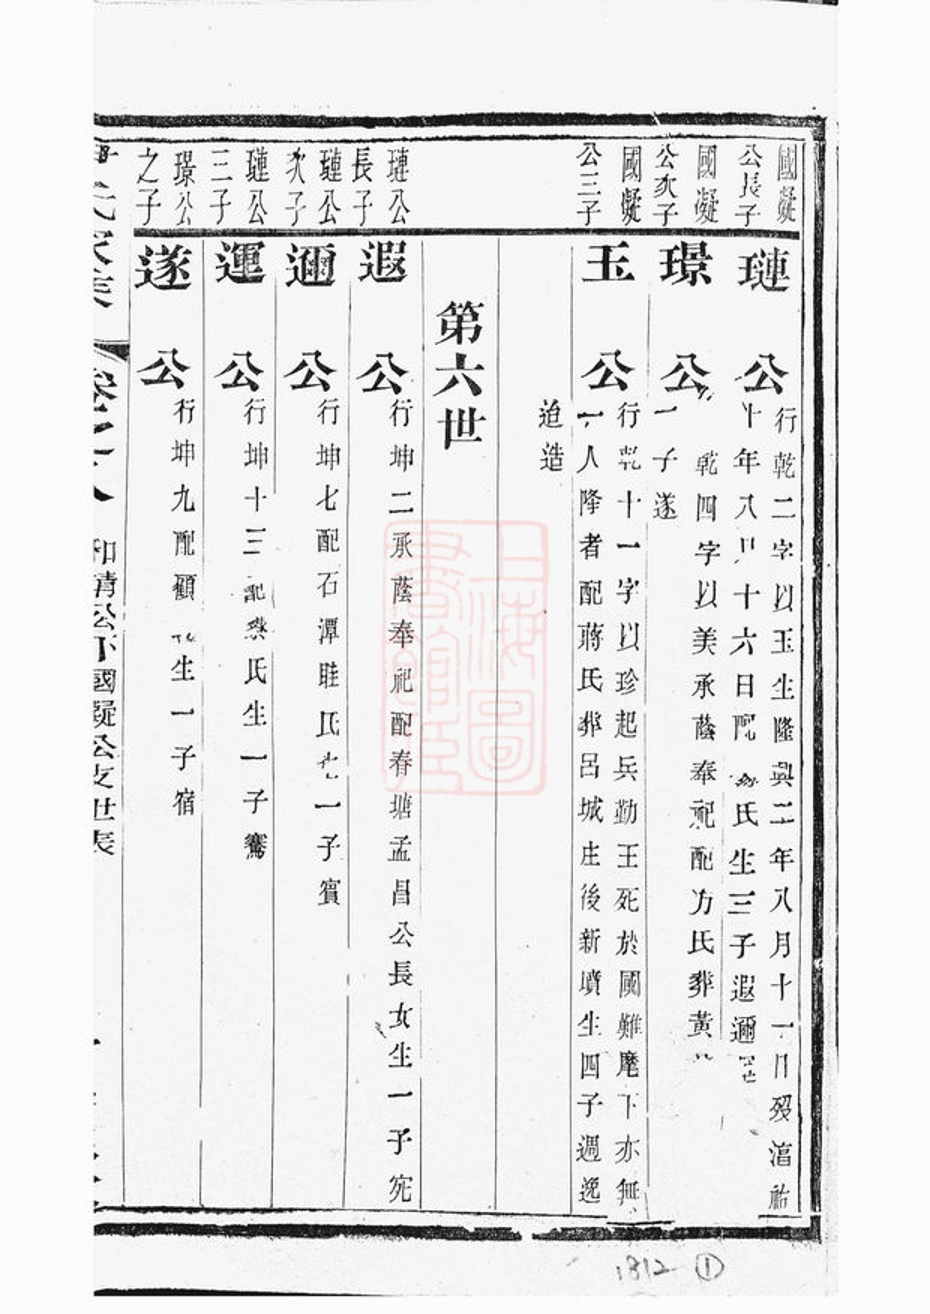 國凝
公長子
璉公
行乾二字以玉生隆興二年八月十一日歿淳祐
十年八月十六日配 氏生三子遐邇運
國凝
公次子
璟公
乾四字以美承蔭奉祀配方氏葬黃
一子遂
國凝
公三子
玉公
行乾十一字以珍起兵勤王死於國難麾下亦無
一人降者配蔣氏葬呂城庄後新墳生四子週逸
迨造
第六世
璉公
長子
遐公
行坤二承蔭奉祀配春塘孟昌公長女生一子宛
璉公
次子
邇公
行坤七配石潭眭氏生一子賓
璉公
三子
運公
行坤十三配 氏生一子騫
璟公
之子
遂公
行坤九配顧氏生一子宿
尹氏家乘
卷之八
和靖公下國凝公支世表
上海圖書館藏
1812 ①